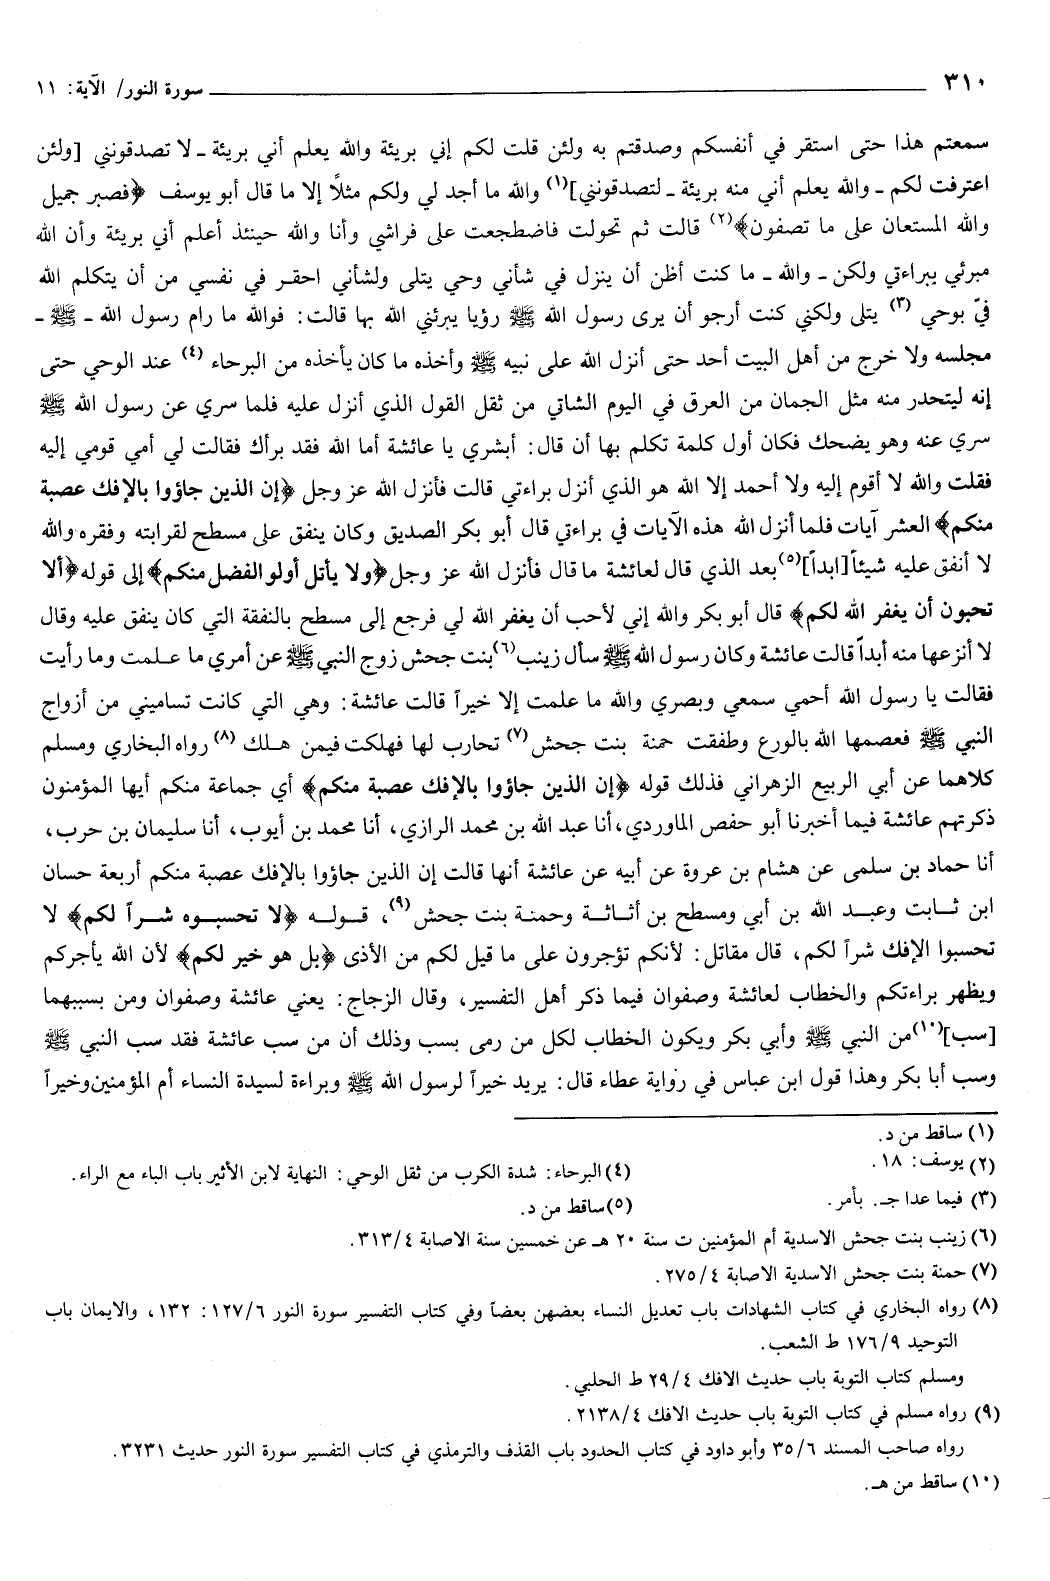 ٣١٠ ــــــــــ سورة النور/ الآية: ١١
سمعتم هذا حتى استقر في أنفسكم وصدقتم به ولئن قلت لكم إني بريئة والله يعلم أني بريئة ـ لا تصدقونني [ولئن
اعترفت لكم ـ والله يعلم أني منه بريئة ـ لتصدقونني](١) والله ما أجد لي ولكم مثلًا إلا ما قال أبو يوسف ﴿فصبر جميل
والله المستعان على ما تصفون﴾(٢) قالت ثم تحولت فاضطجعت على فراشي وأنا والله حينئذ أعلم أني بريئة وأن الله
مبرئي ببراءتي ولكن ـ والله ـ ما كنت أظن أن ينزل في شأني وحي يتلى ولشأني احقـر في نفسي من أن يتكلم الله
فيّ بوحي (٣) يتلى ولكني كنت أرجو أن يرى رسول الله ﷺ رؤيا يبرئني الله بها قالت: فوالله ما رام رسول الله ـ ﷺ ـ
مجلسه ولا خرج من أهل البيت أحد حتى أنزل الله على نبيه ﷺ وأخذه ما كان يأخذه من البرحاء (٤) عند الوحي حتى
إنه ليتحدر منه مثل الجمان من العرق في اليوم الشاتي من ثقل القول الذي أنزل عليه فلما سري عن رسول الله ﷺ
سري عنه وهو يضحك فكان أول كلمة تكلم بها أن قال: أبشري يا عائشة أما الله فقد برأك فقالت لي أمي قومي إليه
فقلت والله لا أقوم إليه ولا أحمد إلا الله هو الذي أنزل براءتي قالت فأنزل الله عز وجل ﴿إن الذين جاؤوا بالإفك عصبة
منكم﴾ العشر آيات فلما أنزل الله هذه الآيات في براءتي قال أبو بكر الصديق وكان ينفق على مسطح لقرابته وفقره والله
لا أنفق عليه شيئاً[ابداً](٥) بعد الذي قال لعائشة ما قال فأنزل الله عز وجل ﴿ولا يأتل أولو الفضل منكم﴾ إلى قوله ﴿ألا
تحبون أن يغفر الله لكم﴾ قال أبو بكر والله إني لأحب أن يغفر الله لي فرجع إلى مسطح بالنفقة التي كان ينفق عليه وقال
لا أنزعها منه أبداً قالت عائشة وكان رسول الله ﷺ سأل زينب(٦) بنت جحش زوج النبي ﷺ عن أمري ما علمت وما رأيت
فقالت يا رسول الله أحمي سمعي وبصري والله ما علمت إلا خيراً قالت عائشة: وهي التي كانت تساميني من أزواج
النبي ﷺ فعصمها الله بالورع وطفقت حمنة بنت جحش (٧) تحارب لها فهلكت فيمن هـلك (٨) رواه البخاري ومسلم
كلاهما عن أبي الربيع الزهراني فذلك قوله ﴿إن الذين جاؤوا بالإفك عصبة منكم﴾ أي جماعة منكم أيها المؤمنون
ذكرتهم عائشة فيما أخبرنا أبو حفص الماوردي، أنا عبد الله بن محمد الرازي، أنا محمد بن أيوب، أنا سليمان بن حرب،
أنا حماد بن سلمى عن هشام بن عروة عن أبيه عن عائشة أنها قالت إن الذين جاؤوا بالإفك عصبة منكم أربعة حسان
ابن ثـابت وعبـد الله بن أبي ومسطح بن أثـاثـة وحمنـة بنت جحش (٩)، قـولـه ﴿لا تحسبـوه شـراً لكم﴾ لا
تحسبوا الإفك شراً لكم، قال مقاتل: لأنكم تؤجرون على ما قيل لكم من الأذى ﴿بل هو خير لكم﴾ لأن الله يأجركم
ويظهر براءتكم والخطاب لعائشة وصفوان فيما ذكر أهل التفسير، وقال الزجاج: يعني عائشة وصفوان ومن بسببهما
[سب](١٠) من النبي ﷺ وأبي بكر ويكون الخطاب لكل من رمى بسب وذلك أن من سب عائشة فقد سب النبي ﷺ
وسب أبا بكر وهذا قول ابن عباس في رواية عطاء قال: يريد خيراً لرسول الله ﷺ وبراءة لسيدة النساء أم المؤمنين وخيراً
(١) ساقط من د.
(٢) يوسف: ١٨.
(٤) البرحاء: شدة الكرب من ثقل الوحي: النهاية لابن الأثير باب الباء مع الراء.
(٣) فيما عدا جـ. بأمر.
(٥) ساقط من د.
(٦) زينب بنت جحش الاسدية أم المؤمنين ت سنة ٢٠ هـ عن خمسين سنة الاصابة ٣١٣/٤.
(٧) حمنة بنت جحش الاسدية الاصابة ٢٧٥/٤.
(٨) رواه البخاري في كتاب الشهادات باب تعديل النساء بعضهن بعضاً وفي كتاب التفسير سورة النور ١٢٧/٦: ١٣٢، والايمان باب
التوحيد ١٧٦/٩ ط الشعب.
ومسلم كتاب التوبة باب حديث الافك ٢٩/٤ ط الحلبي.
(٩) رواه مسلم في كتاب التوبة باب حديث الافك ٢١٣٨/٤.
رواه صاحب المسند ٣٥/٦ وأبو داود في كتاب الحدود باب القذف والترمذي في كتاب التفسير سورة النور حديث ٣٢٣١.
(١٠) ساقط من هـ.